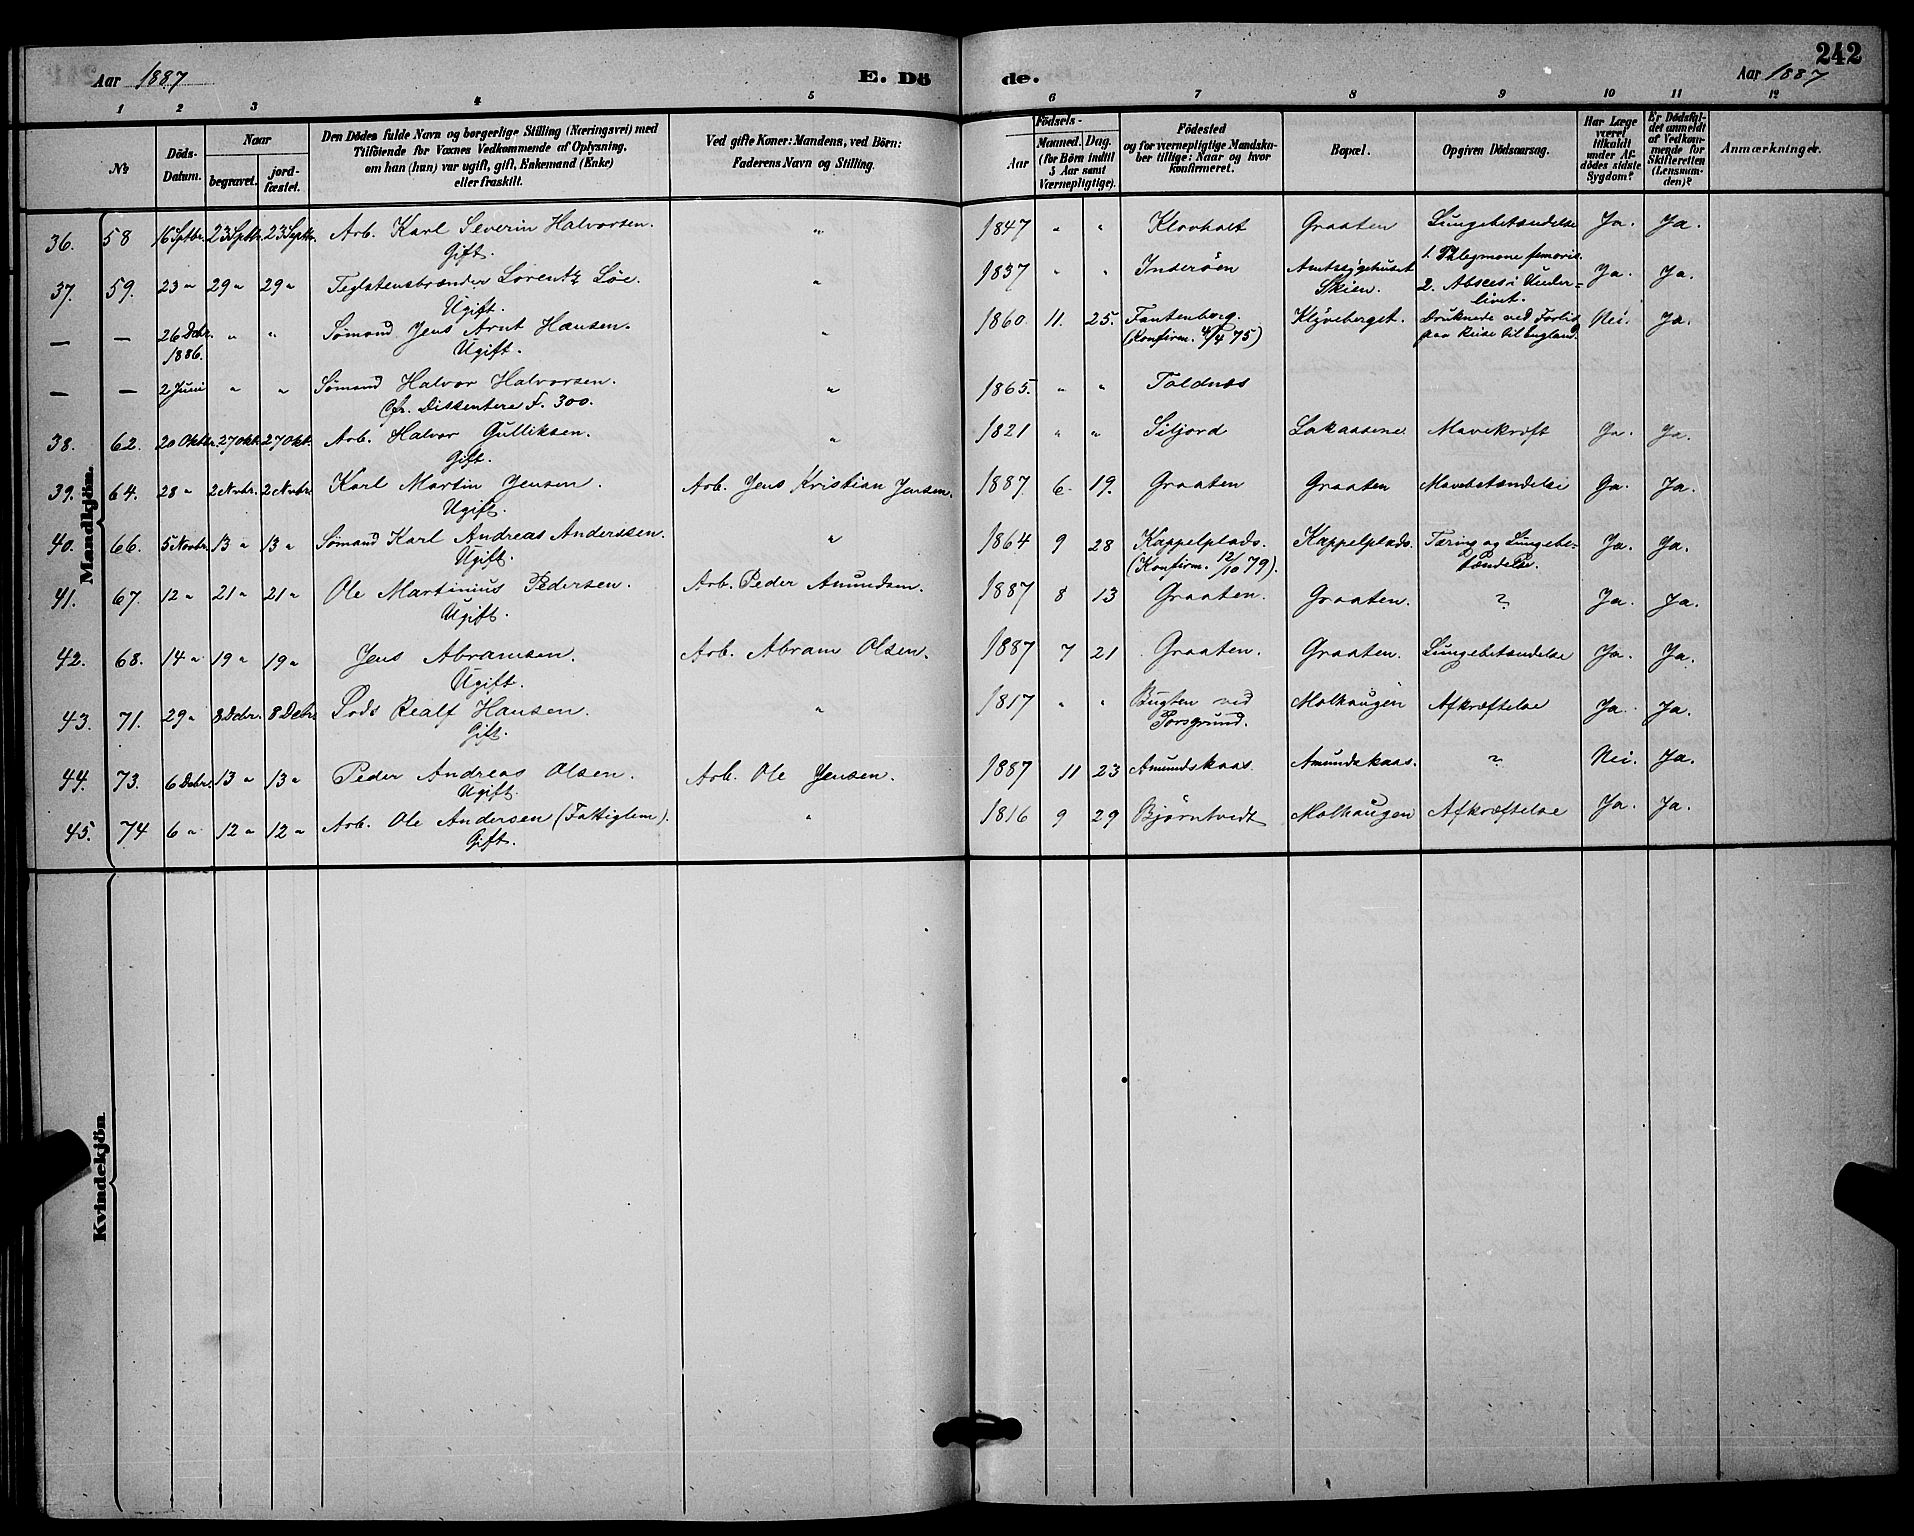 242
Aar 1887 E. Dö de. Aar 1887
1 2 3 4 5 6 7 8 9 10 11 12
№
Döds-Datum.
Naar
begravet.
jord-fæstet.
Den Dödes fulde Navn og borgerlige Stilling (Næringsvei) med
Tilföiende for Voxnes Vedkommende af Oplysning,
om han (hun) var ugift, gift, Enkemand (Enke)
eller fraskilt.
Ved gifte Koner: Mandens, ved Börn:
Faderens Navn og Stilling.
Födsels-
Aar
Maaned. Dag.
(for Börn indtil
5 Aar samt
Værnepligtige).
Födested
og for værnepligtige Mandska-
ber tillige: Naar og hvor
konfirmeret.
Bopæl.
Opgiven Dödsaarsag.
Har Læge
været
tilkaldt
under Af-
dödes sidste
Sygdom?
Er Dödsfal-
det anmeldt
af Vedkom-
mende for
Skifteretten
(Lensman-
den)?
Anmærkninger.
Mandkjön.
36. 58 16 Sptbr. 23 Septbr. 23 Septbr. Arb. Karl Severin Halvorsen. " 1847 " " Klovholt Graaten Lungebetændelse Ja. Ja.
Gift.
37. 59. 23 " 29 " 29 " Teglstensbrænder Lorentz Löe. " 1837 " " Inderöen Amtssygehuset 1. Phlegmone femoris. Ja. Ja.
Ugift. Skien. 2. Absces i Under-
livet.
— — 26 Decbr. " " Sømand Jens Arnt Hansen. " 1860. 11. 25. Fantenborg. Klyveberget. Druknede ved Forlis Nei. Ja.
1886. Ugift. (Konfirm. 4/4 75) paa Reise til England.
— — 2 Juni " " Sømand Halvor Halvorsen. " 1865. " " Toldnæs
Cfr. Dissentere F. 300.
38. 62. 20 Oktbr. 27 Okt. 27 Okt. Arb. Halvor Gulliksen. " 1821 " " Siljord Lakaasene Mavekræft Ja. Ja.
Gift.
39. 64. 28 " 2 Novbr. 2 Novbr. Karl Martin Jensen. Arb. Jens Kristian Jensen. 1887. 6. 19. Graaten Graaten Mavebetændelse Ja. Ja.
Ugift.
40. 66. 5 Novbr. 13 " 13 " Sømand Karl Andreas Anderssen. " 1864 9 28 Kappelplads. Kappelplads. Tæring og Lungebe- Ja. Ja.
Ugift. (Konfirm. 12/10 79). tændelse.
41. 67. 12 " 21 " 21 " Ole Martinius Pedersen. Arb. Peder Amundsen. 1887 8 13 Graaten. Graaten. ? Ja. Ja.
Ugift.
42. 68. 14 " 19 " 19 " Jens Abramsen. Arb. Abram Olsen. 1887 7 21 Graaten. Graaten. Lungebetændelse Ja. Ja.
Ugift.
43. 71. 29 " 8 Decbr. 8 Decbr. Lods Realf Hansen. " 1817 " " Bugten ved Molhaugen Afkræftelse Ja. Ja.
Gift. Porsgrund.
44. 73. 6 Decbr. 13 " 13 " Peder Andreas Olsen. Arb. Ole Jensen. 1887 11 23 Amundskaas. Amundskaas. ? Nei. Ja.
Ugift.
45. 74 6 " 12 " 12 " Arb. Ole Andersen (Fattiglem). " 1816 9 29 Bjørntvedt Molhaugen Afkræftelse Ja. Ja.
Gift.
Kvindekjön.